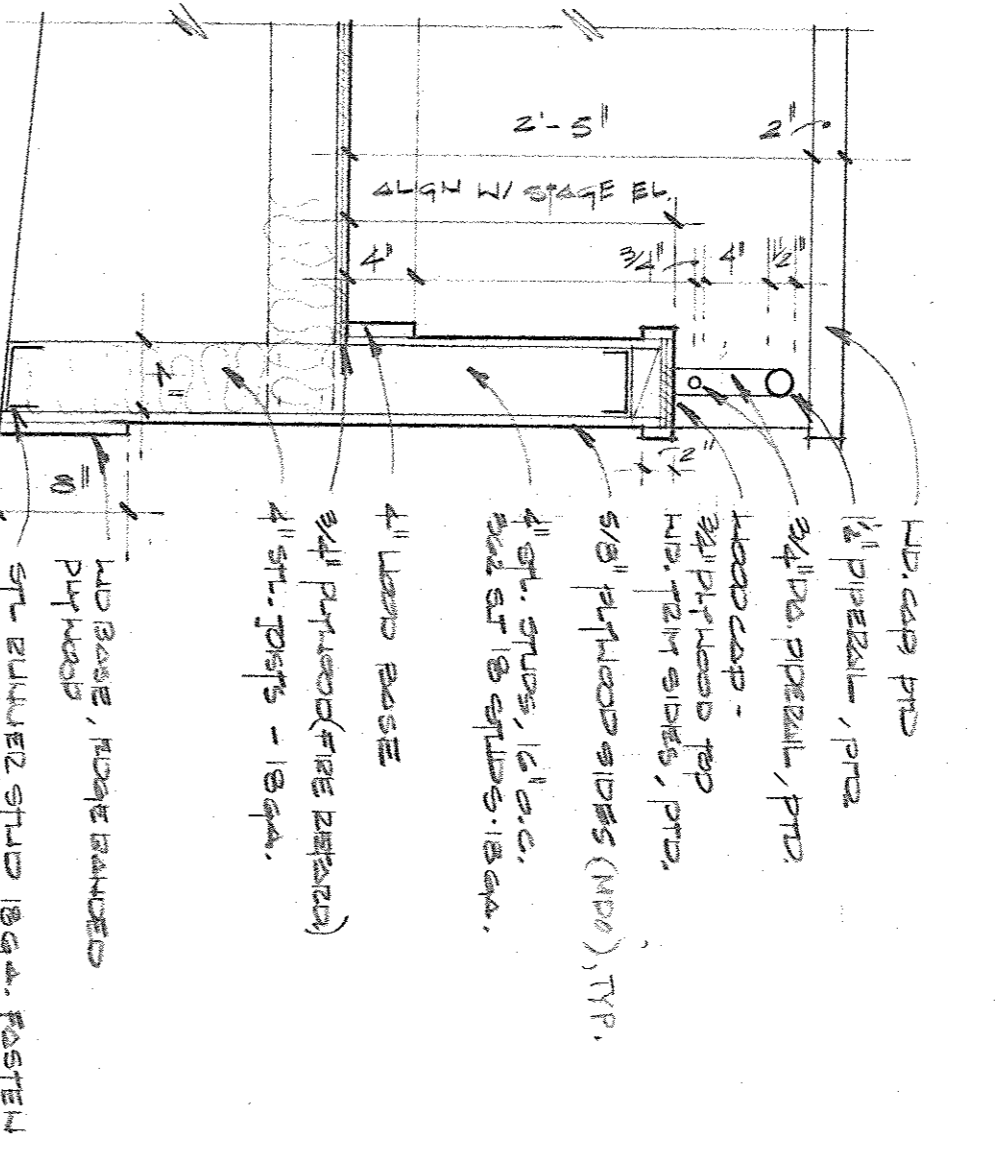 2'-5"
2"
ALIGN W/ STAGE EL.
4"
3/4"
4"
1 1/2"
4"
2"
8"
WD. CAP, PTD
1 1/2" PIPERAIL, PTD
3/4" DIA PIPERAIL, PTD.
WOOD CAP -
3/4" PLYWOOD TOP
WD. TRIM SIDES, PTD.
5/8" PLYWOOD SIDES (MDO), TYP.
4" STL. STUDS, 16" O.C.
ST 18 STUDS. 18 GA.
4" WOOD BASE
3/4" PLYWOOD (FIRE RETARD)
4" STL. JOISTS - 18 GA.
WD BASE, EDGE BANDED
PLYWOOD
STL RUNNER STUD 18 GA. FASTEN